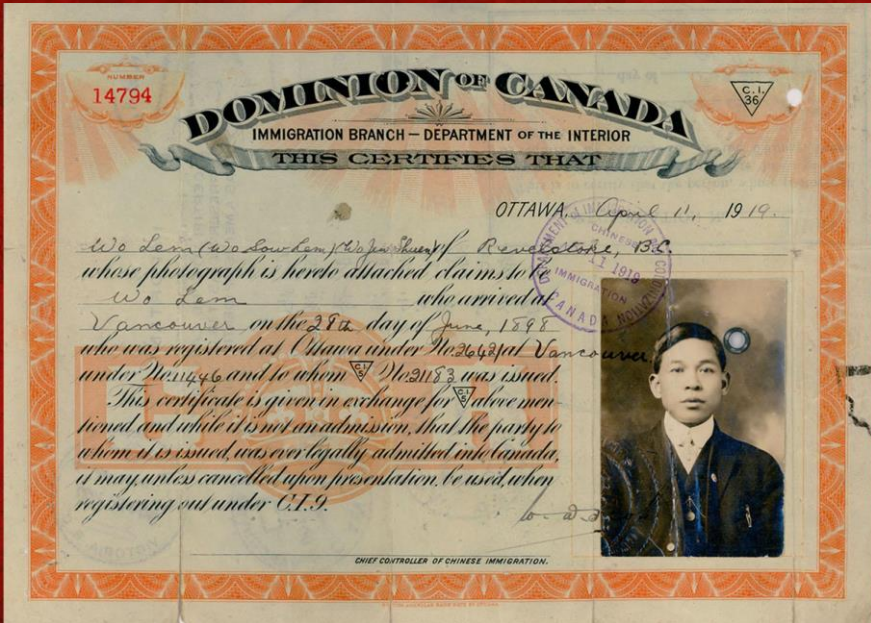 NUMBER
14794
C. I. 36
DOMINION OF CANADA
IMMIGRATION BRANCH — DEPARTMENT OF THE INTERIOR
THIS CERTIFIES THAT
OTTAWA, April 11, 1919.
Wo Lem (Wo Sow Lem) (Wo Jew Shuen) of Revelstoke, B.C.
whose photograph is hereto attached claims to be
Wo Lem who arrived at
Vancouver on the 28th day of June, 1898
who was registered at Ottawa under No. 26421 at Vancouver
under No. 11446 and to whom C.I. 5 No. 21183 was issued.
This certificate is given in exchange for C.I. 5 above men-
tioned and while it is not an admission, that the party to
whom it is issued, was ever legally admitted into Canada,
it may, unless cancelled upon presentation, be used, when
registering out under C.I.9.
CHIEF CONTROLLER OF CHINESE IMMIGRATION.
DEPARTMENT OF IMMIGRATION & COLONIZATION
CHINESE
11 1919
IMMIGRATION
CANADA